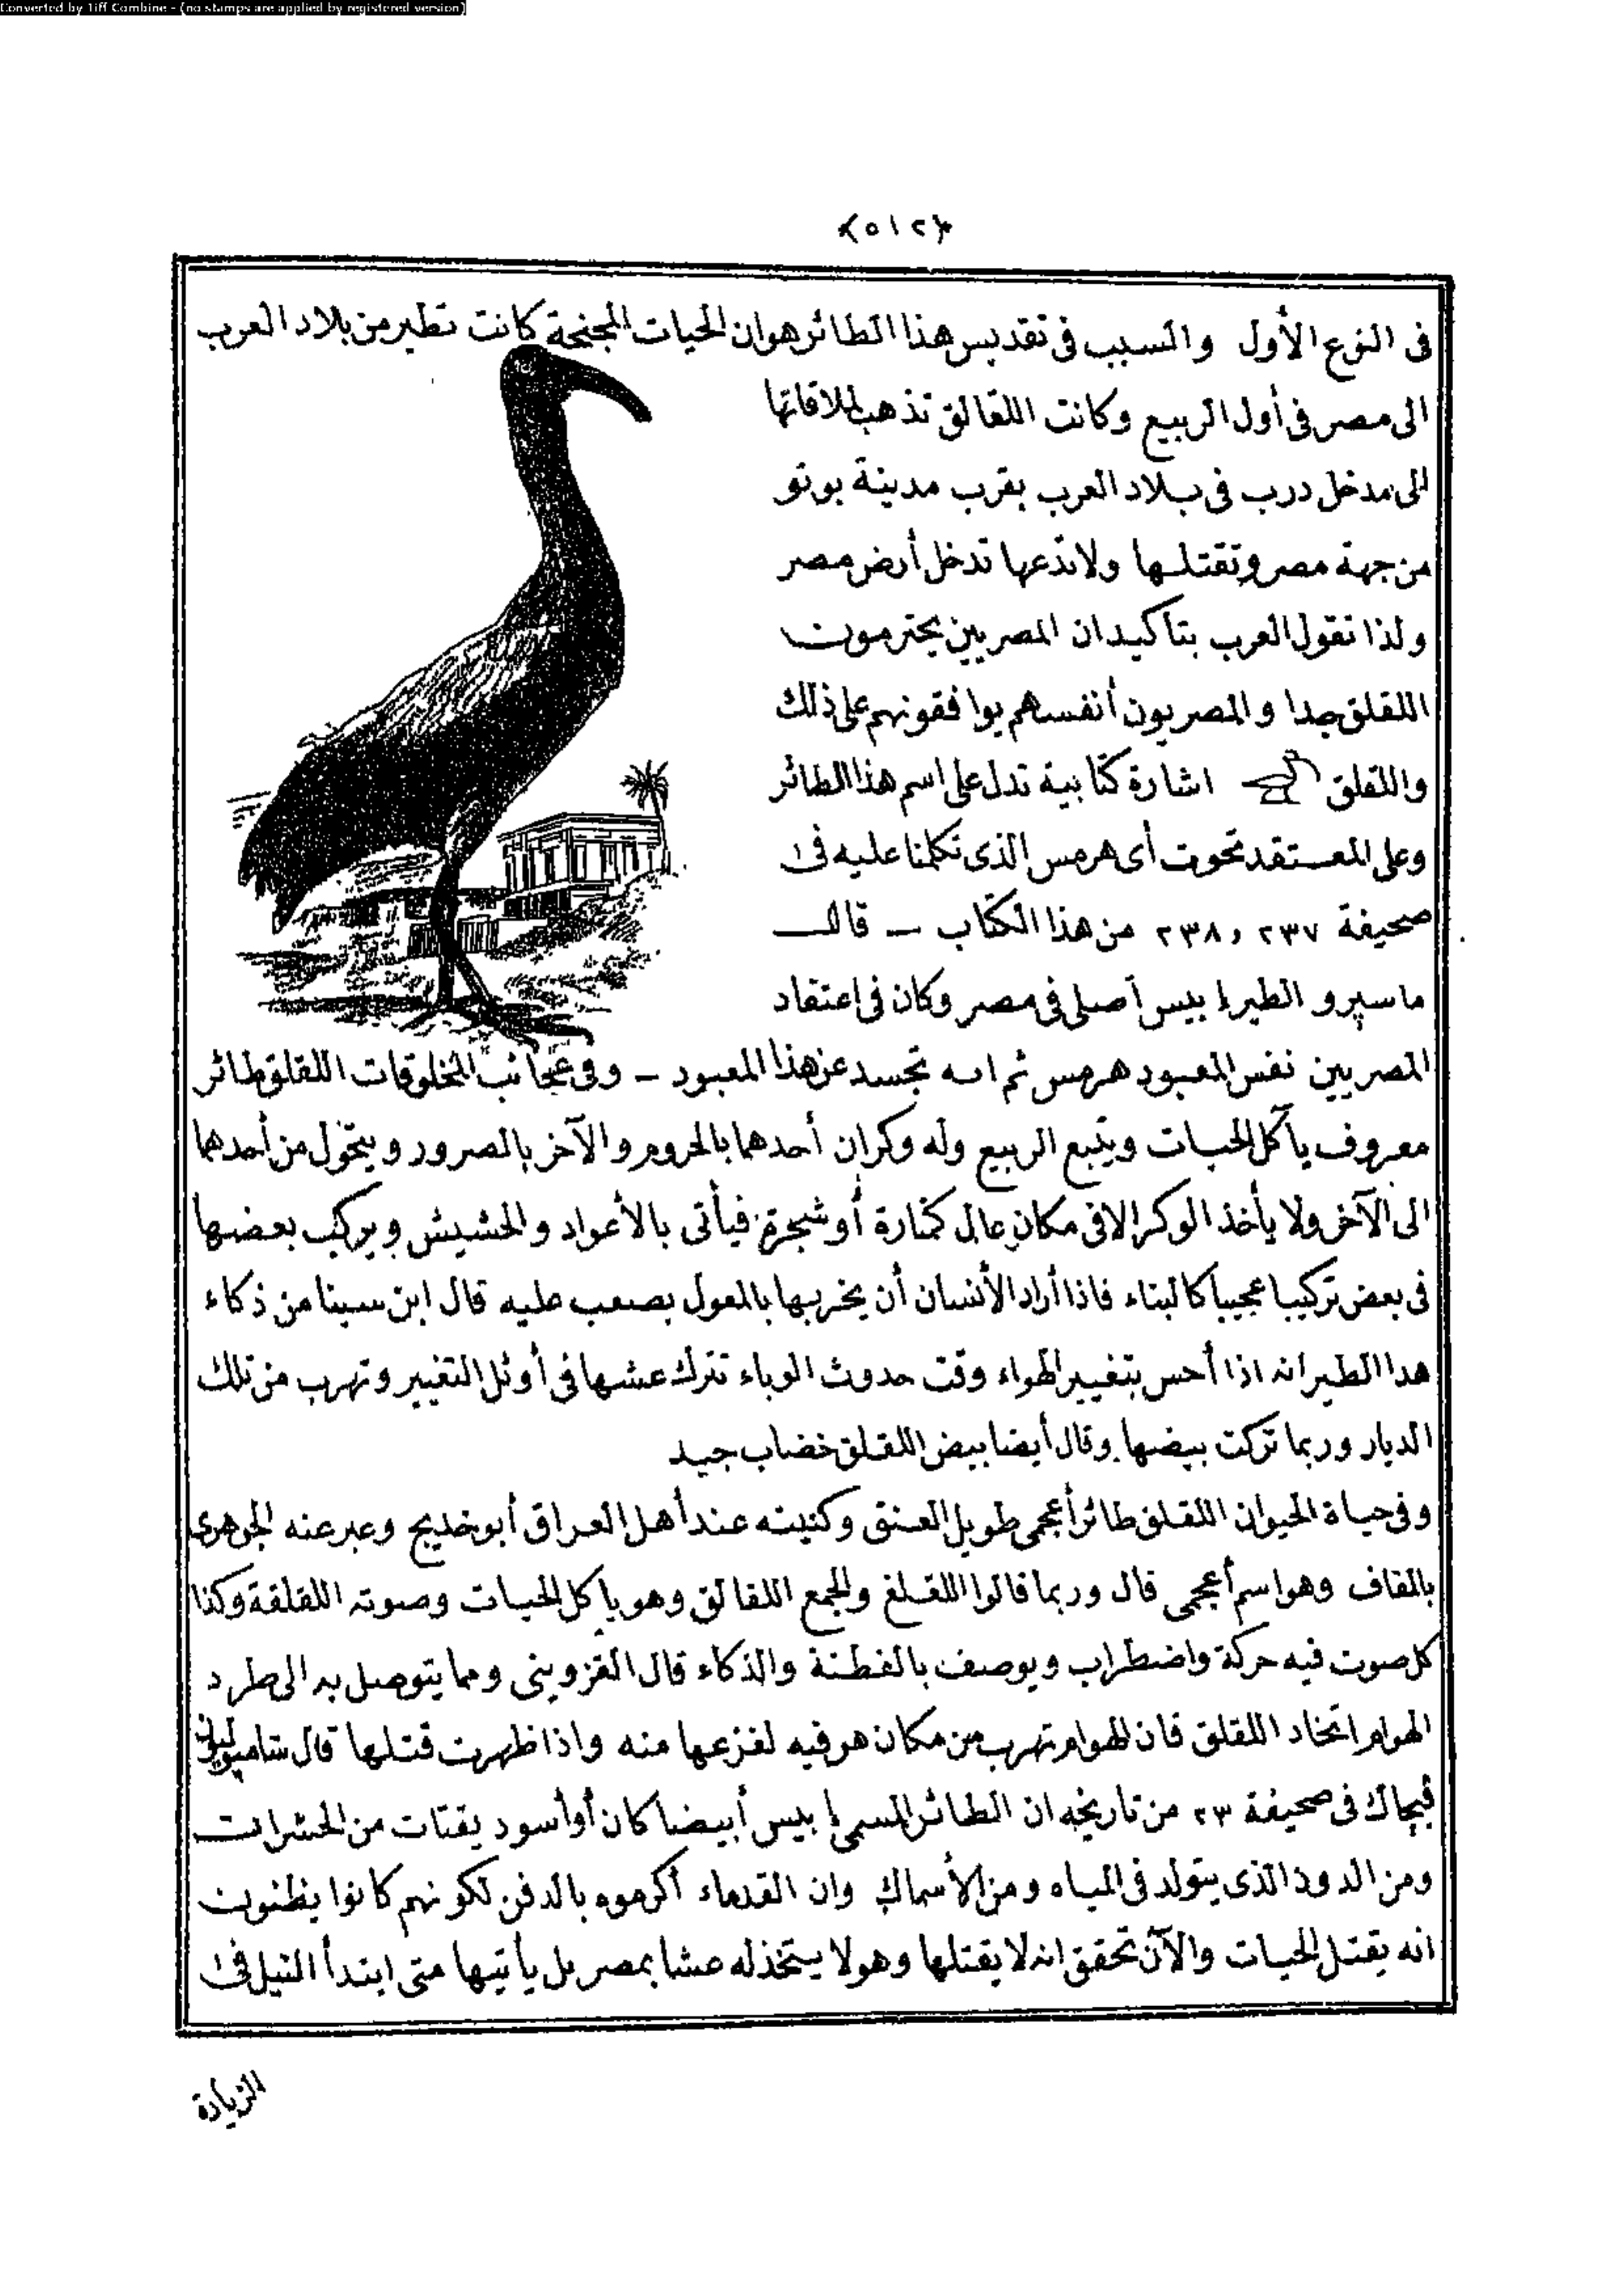 Converted by Tiff Combine - (no stamps are applied by registered version)
﴿٥١٢﴾
فى النوع الأول والسبب فى تقديس هذا الطائر هو ان الحيات المجنحة كانت تطير من بلاد العرب
الى مصر فى أول الربيع وكانت اللقالق تذهب لملاقاتها
الى مدخل درب فى بلاد العرب بقرب مدينة بوتو
من جهة مصر وتقتلها ولا تدعها تدخل أرض مصر
ولذا تقول العرب بتأكيد ان المصريين يحترمون
اللقلق جدا والمصريون أنفسهم يوافقونهم على ذلك
واللقلق اشارة كتابية تدل على اسم هذا الطائر
وعلى المعتقد تحوت أى هرمس الذى تكلمنا عليه فى
صحيفة ٢٣٧ و ٢٣٨ من هذا الكتاب — قال
ماسپرو الطير إبيس أصلى فى مصر وكان فى اعتقاد
المصريين نفس المعبود هرمس ثم انه تجسد عن هذا المعبود — وفى عجائب المخلوقات اللقلق طائر
معروف يأكل الحيات ويتبع الربيع وله وكران أحدهما بالحروم والآخر بالصرور ويتحول من أحدهما
الى الآخر ولا يأخذ الوكر الا فى مكان عال كمنارة أو شجرة فيأتى بالأعواد والحشيش ويركب بعضها
فى بعض تركيبا عجيبا كالبناء فاذا أراد الأنسان أن يخربها بالمعول يصعب عليه قال ابن سينا من ذكاء
هدا الطير انه اذا أحس بتغيير الهواء وقت حدوث الوباء تترك عشها فى أوئل التغيير وتهرب من تلك
الديار وربما تركت بيضها وقال أيضا بيض اللقلق خضاب جيد
وفى حياة الحيوان اللقلق طائر أعجمى طويل العنق وكنيته عند أهل العراق أبو خديج وعبر عنه الجوهرى
بالقاف وهو اسم أعجمى قال وربما قالوا اللقلغ والجمع اللقالق وهو يأكل الحيات وصوته اللقلقة وكذا
كل صوت فيه حركة واضطراب ويوصف بالفطنة والذكاء قال القزوينى ومما يتوصل به الى طرد
الهوام اتخاد اللقلق فان الهوام تهرب من مكان هو فيه لفزعها منه واذا ظهرت قتلها قال شامپوليون
فيجاك فى صحيفة ٢٣ من تاريخه ان الطائر المسمى إبيس أبيضا كان أو أسود يقتات من الحشرات
ومن الدود الذى يتولد فى المياه ومن الأسماك وان القدماء أكرموه بالدفن لكونهم كانوا يظنون
انه يقتل الحيات والآن تحقق انه لا يقتلها وهو لا يتخذ له عشا بمصر بل يأتيها متى ابتدأ النيل فى
الزيادة